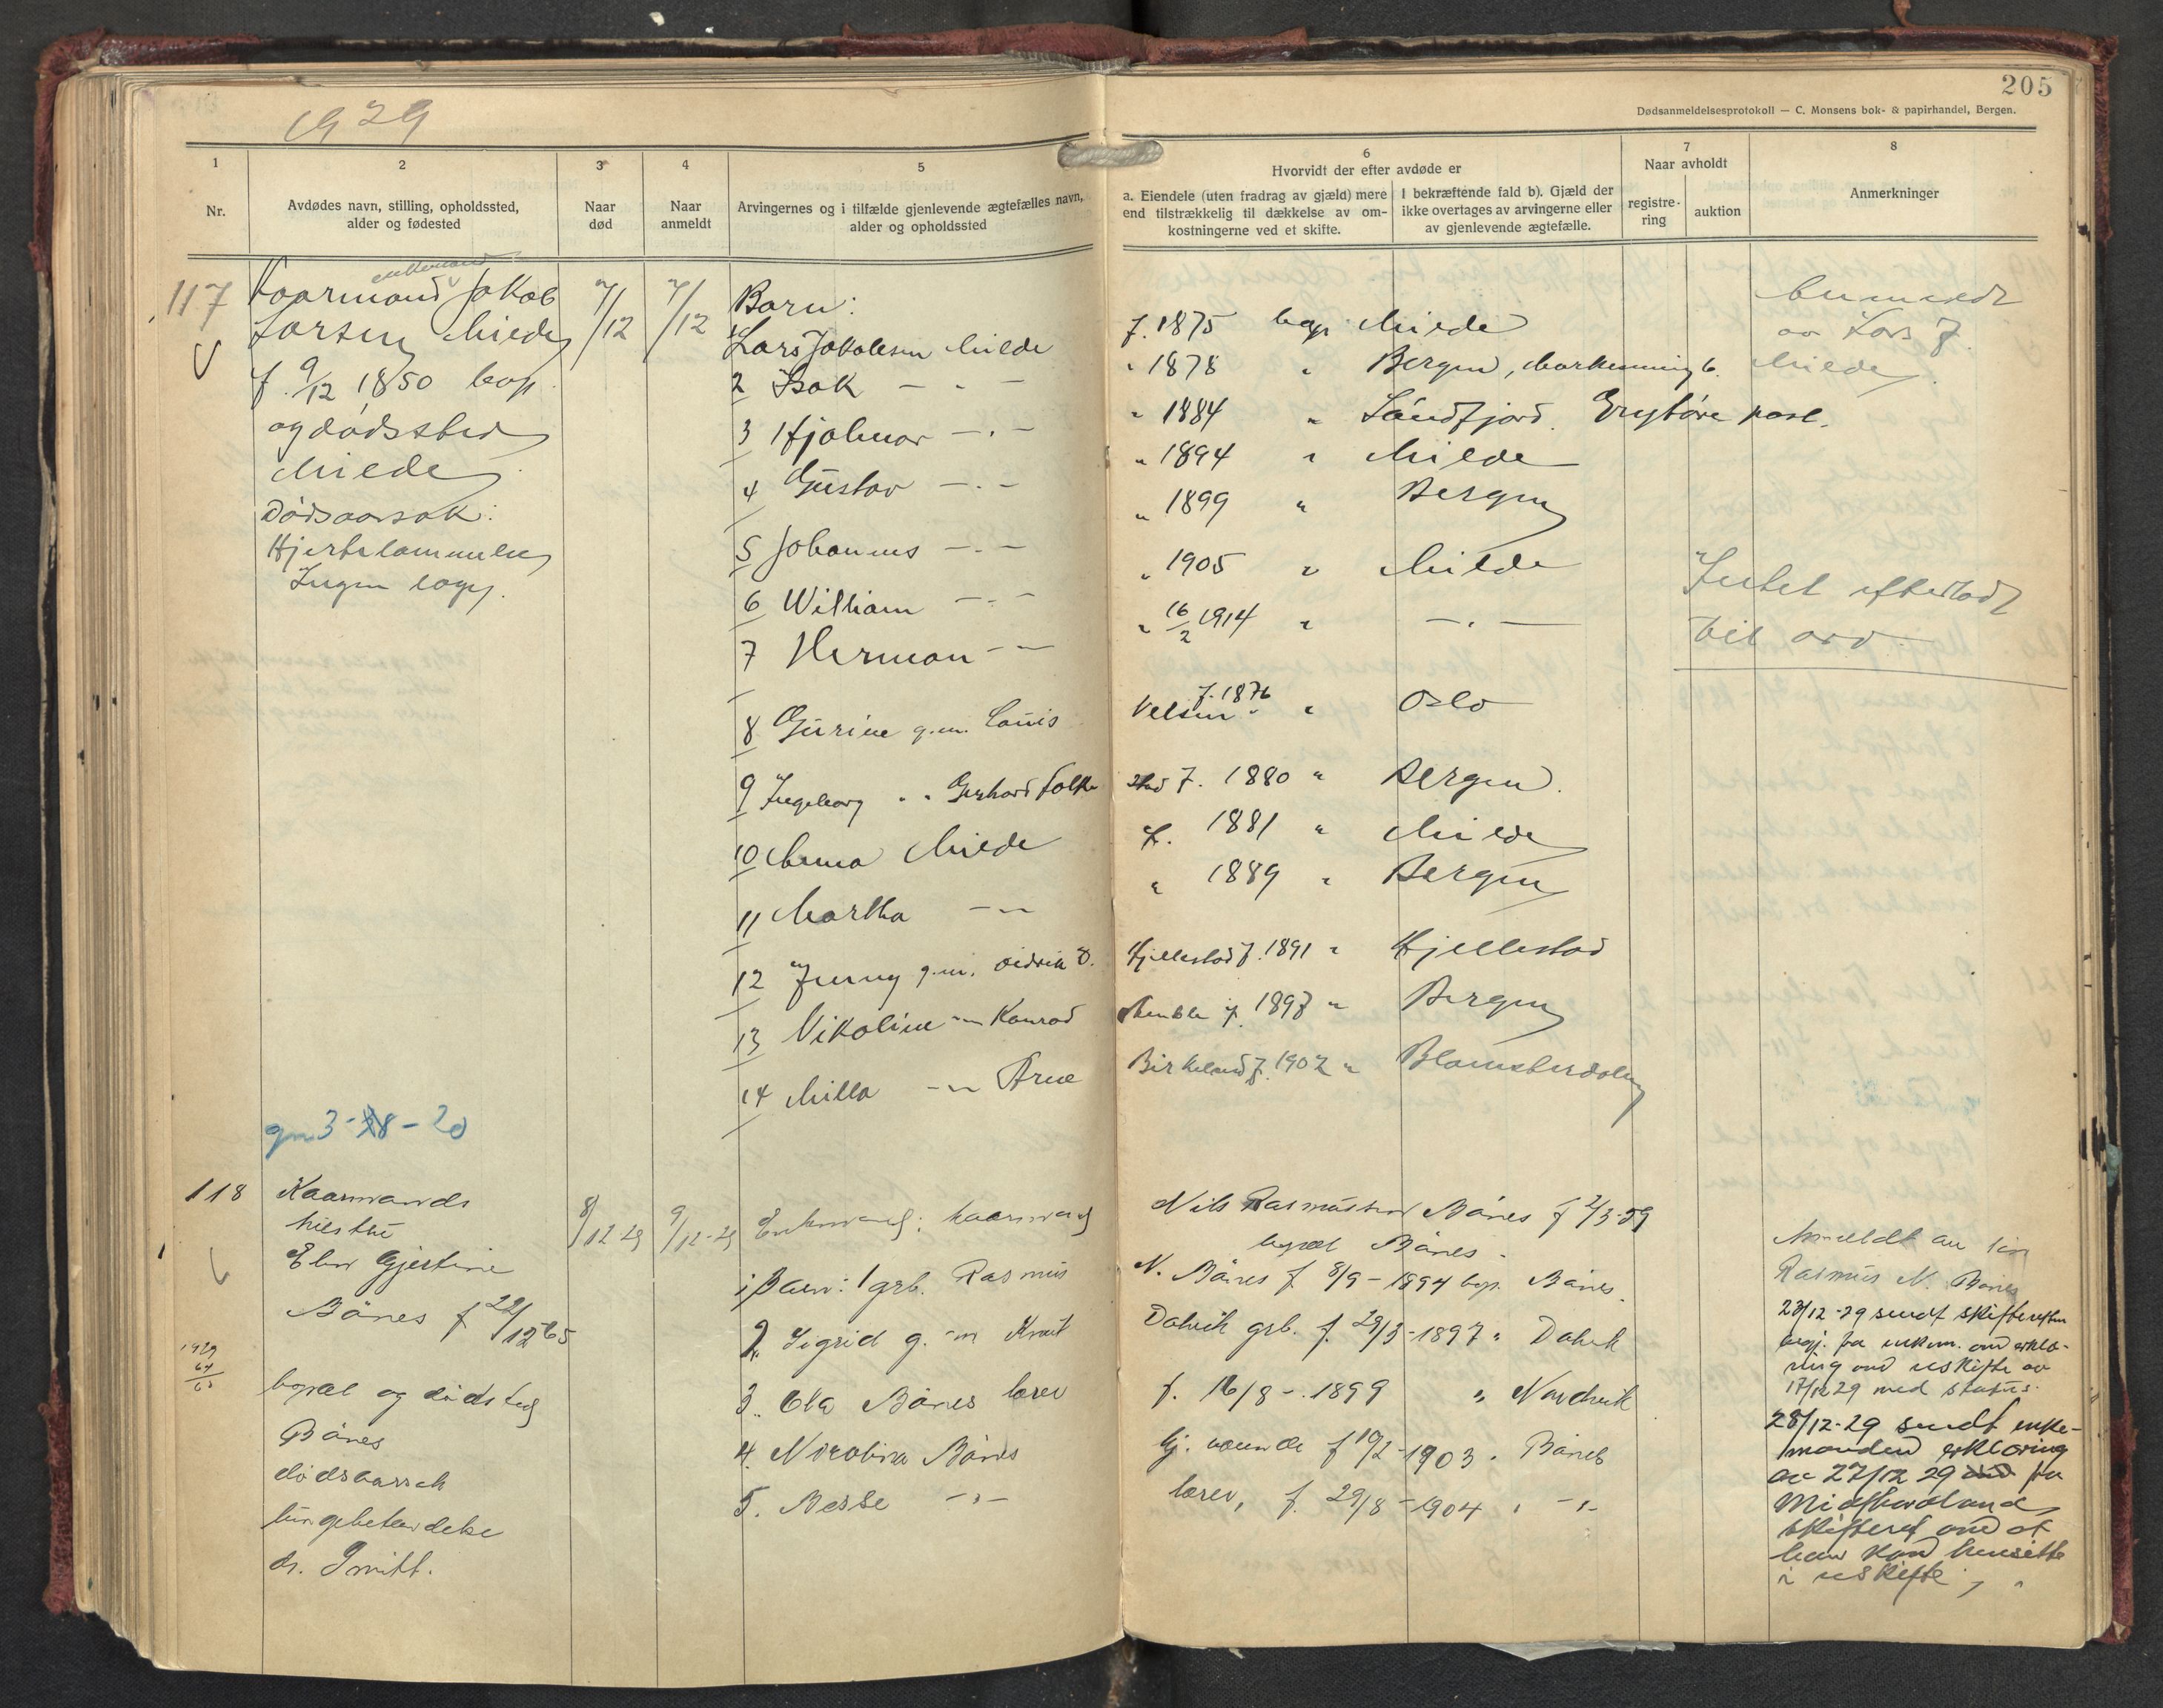 1929
205
Dødsanmeldelsesprotokoll — C. Monsens bok- & papirhandel, Bergen.
1
Nr.
2
Avdødes navn, stilling, opholdssted,
alder og fødested
3
Naar
død
4
Naar
anmeldt
5
Arvingernes og i tilfælde gjenlevende ægtefælles navn,
alder og opholdssted
6
Hvorvidt der efter avdøde er
a. Eiendele (uten fradrag av gjæld) mere
end tilstrækkelig til dækkelse av om-
kostningerne ved et skifte.
I bekræftende fald b). Gjæld der
ikke overtages av arvingerne eller
av gjenlevende ægtefælle.
7
Naar avholdt
registre-
ring
auktion
8
Anmerkninger
117
enkemand
Kaarmand Jakob
Larsen Milde
f. 9/12 1850 bop.
og dødssted
Milde
Dødsaarsak:
Hjertelammelse
Ingen læge.
7/12
7/12
Barn:
1 Lars Jakobsen Milde f. 1875 bop. Milde
2 Isak — " — " 1878 " Bergen, Marken 6.
3 Hjalmar — " — " 1884 " Søndfjord. post.
4 Gustav — " — " 1894 " Milde
5 Johannes — " — " 1899 " Bergen
6 William — " — " 1905 " Milde
7 Herman — " — " 16/2 1914 " — " —
8 Gurine g.m. Louis Nelsen f. 1876 " Oslo
9 Ingeborg " " Gerhard Folke
stad f. 1880 " Bergen.
10 Anna Milde f. 1881 " Milde
11 Martha — " — " 1889 " Bergen
12 Jenny g.m. Didrik O. Hjellestad f. 1891 " Hjellestad
13 Nikoline — " — Konrad f. 1897 " Bergen
14 Milla — " — Arne Birkeland f. 1902 " Blomsterdalen
Anmeldt
av Lars J.
Milde.
Intet efterladt
til arv
gm 3-8-20
118
Kaarmands
hustru
Elen Gjertine
Bönes f 22/12 65
bopæl og dödsted
Bönes
dödsaarsak
lungebetendelse
dr. Smitt.
1929
8/12 29
9/12-29
Enkemand: kaarmand Nils Rasmussen Bönes f 2/3-59
bopæl Bönes.
Barn: 1 grb. Rasmus N. Bönes f 8/9-1894 bop. Bönes.
2. Sigrid g. m Knut Dalvik grb. f. 29/3-1897 " Dalvik
3. Ola Bönes lærer f. 16/8-1899 " Nordvik
4. Bönes f 19/2-1903 " Bönes
5. — " — lærer, f. 29/8-1904 " — " —
Anmeldt av sön
Rasmus N. Bönes
23/12-29 sendt skifteretten
begj. fra enkem. om erklæ-
ring om uskifte av
17/12 29 med status.
28/12-29 sendt enke-
manden erklæring
av 27/12 29 fra
Midhordland
skifteret om at
han kan hensitte
i uskifte